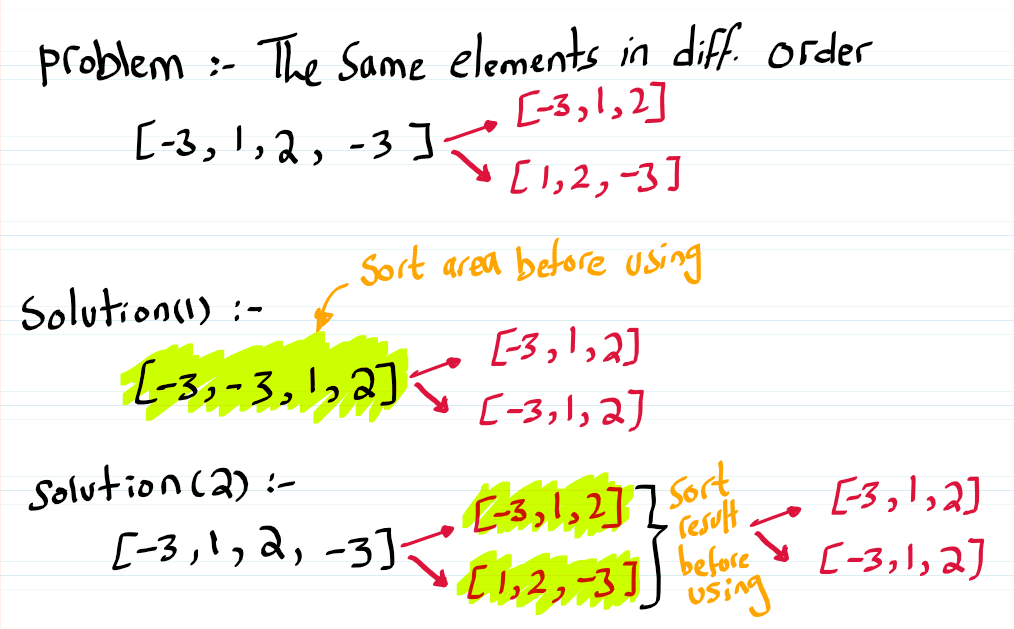 problem :- The Same elements in diff. order
[-3, 1, 2]
[-3, 1, 2, -3]
[1, 2, -3]
Sort area before using
Solution(1) :-
[-3, 1, 2]
[-3, -3, 1, 2]
[-3, 1, 2]
Solution(2) :-
[-3, 1, 2, -3]
[-3, 1, 2]
[1, 2, -3]
Sort
result
before
using
[-3, 1, 2]
[-3, 1, 2]